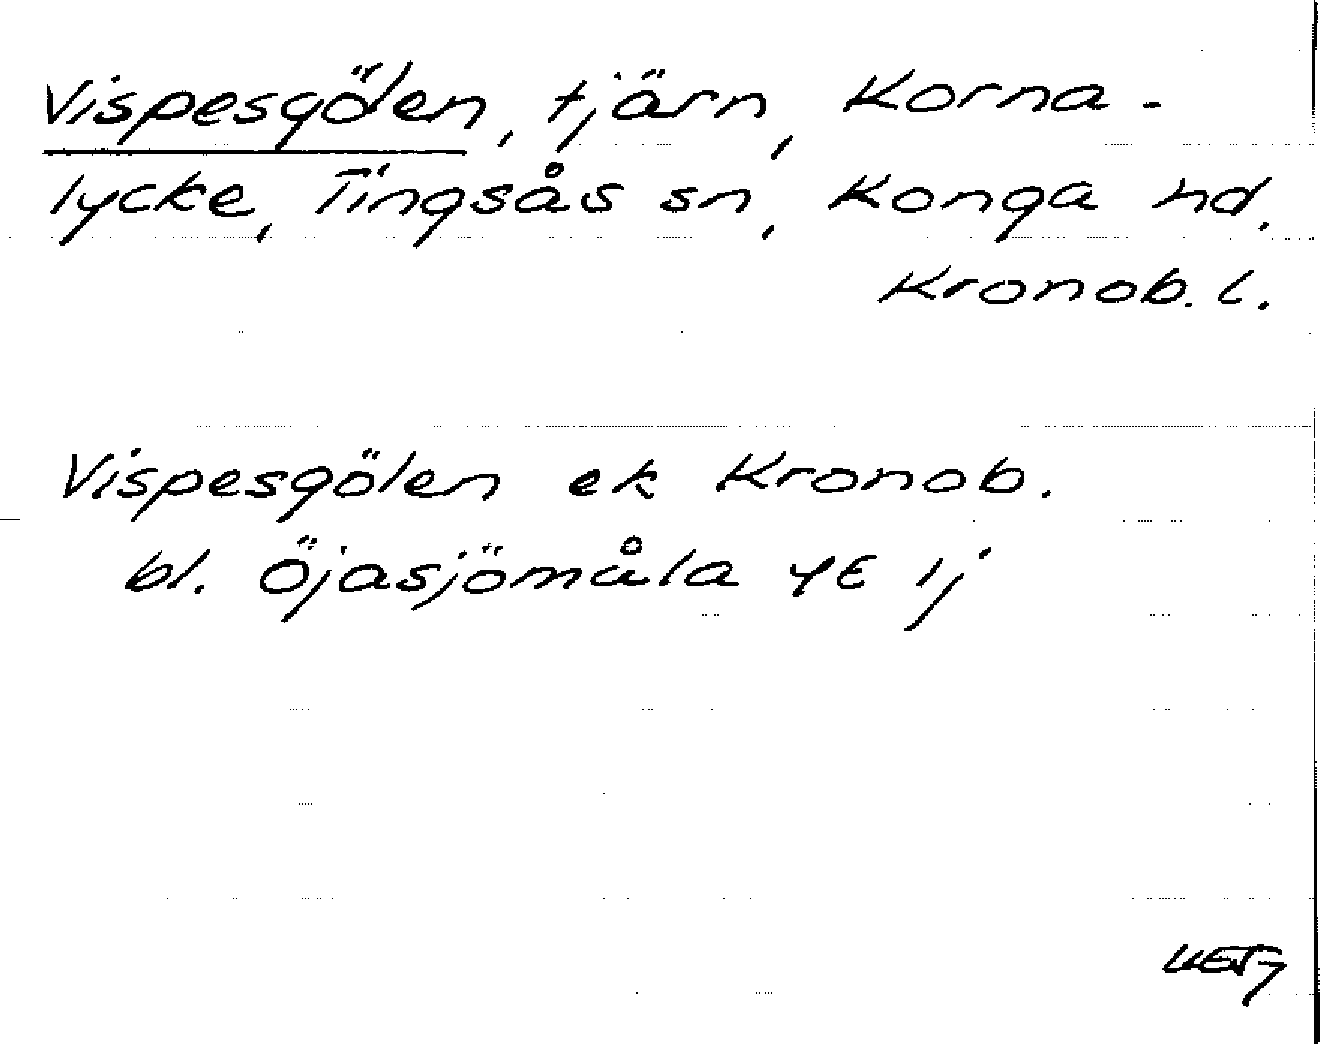 Vispesgölen, tjärn, Korna-
lycke, Tingsås sn, Konga hd.
Kronob. l.
Vispesgölen ek Kronob.
bl. Öjasjömåla 4E 1j